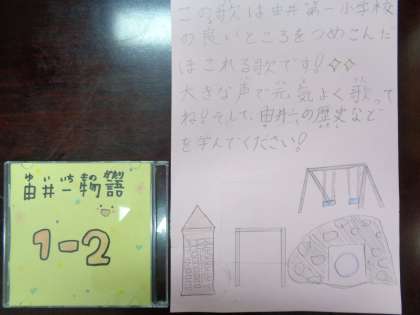 この歌は由井第一小学校
の良いところをつめこんだ
はされる歌です!
大きな声で元気よく歌って
ね!そして、由井一の歴史など
を学んでください!
ゆ い いち もの がたり
由井一物語
1-2